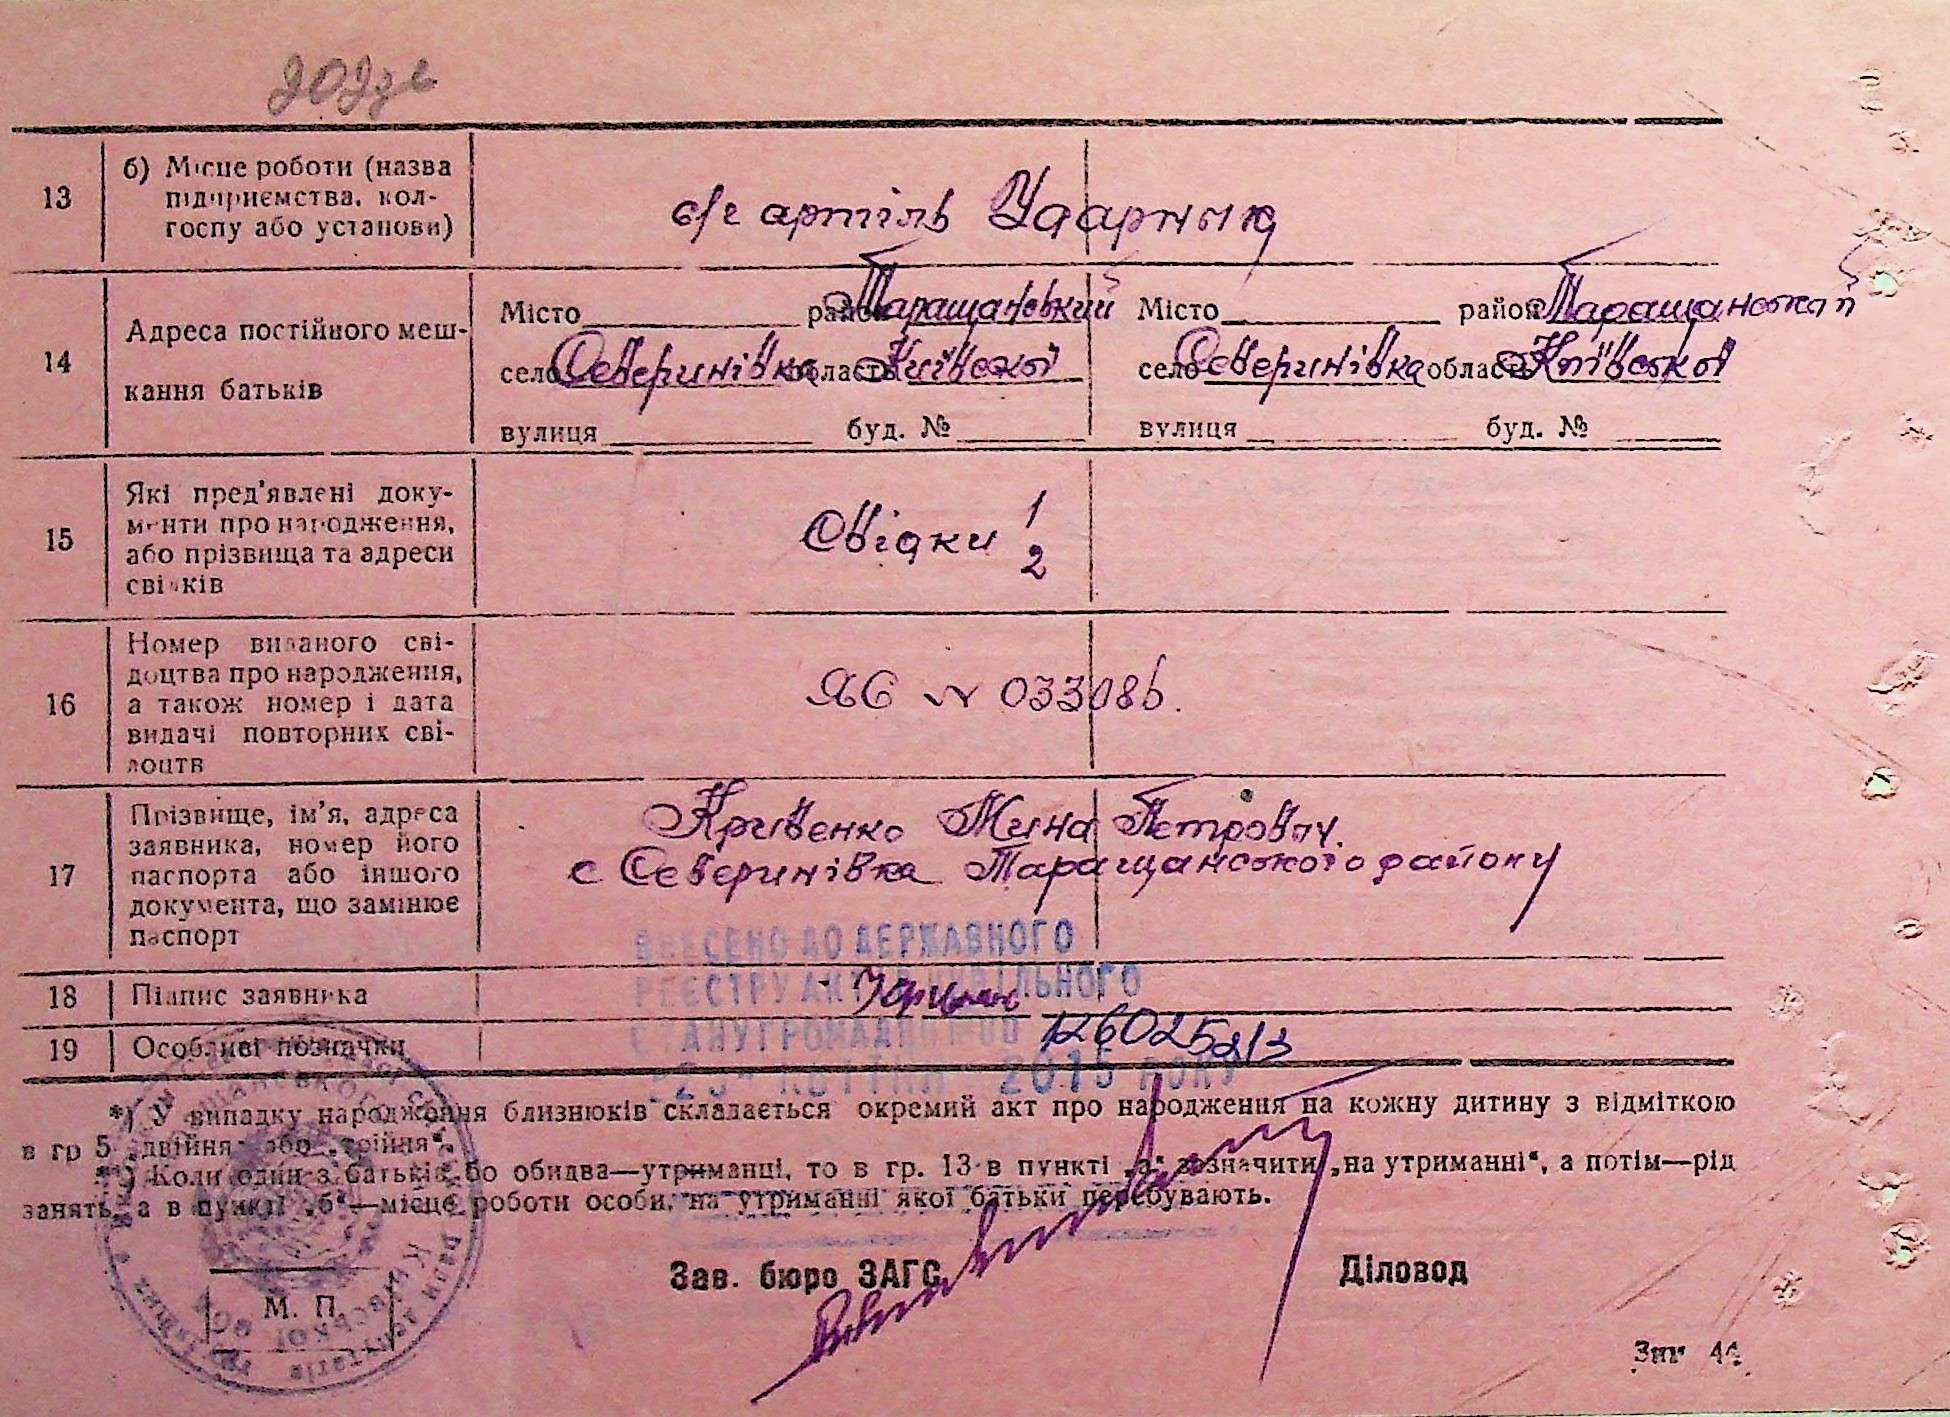 202зв
13
б) Місце роботи (назва
підприємства, кол-
госпу або установи)
с/г артіль Ударник
14
Адреса постійного меш-
кання батьків
Місто район Таращанський Місто район Таращанський
село Северинівка область Київської село Северинівка область Київської
вулиця буд. № вулиця буд. №
15
Які пред'явлені доку-
менти про народження,
або прізвища та адреси
свідків
Свідки 1
2
16
Номер виданого сві-
доцтва про народження,
а також номер і дата
видачі повторних сві-
доцтв
ЯБ N 033086.
17
Прізвище, ім'я, адреса
заявника, номер його
паспорта або іншого
документа, що замінює
паспорт
Кривенко Мина Петрович.
с Северинівка Таращанського району
ВНЕСЕНО ДО ДЕРЖАВНОГО
РЕЄСТРУ АКТІВ ЦИВІЛЬНОГО
СТАНУ ГРОМАДЯН
КВІТНЯ 2015 РОКУ
18 Підпис заявника
19 Особливі позначки
*) У випадку народження близнюків складається окремий акт про народження на кожну дитину з відміткою
в гр 5 „двійня" або „трійня".
**) Коли один з батьків або обидва—утриманці, то в гр. 13 в пункті „а" зазначити „на утриманні", а потім—рід
занять, а в пункті „б"—місце роботи особи, на утриманні якої батьки перебувають.
Зав. бюро ЗАГС Діловод
М. П.